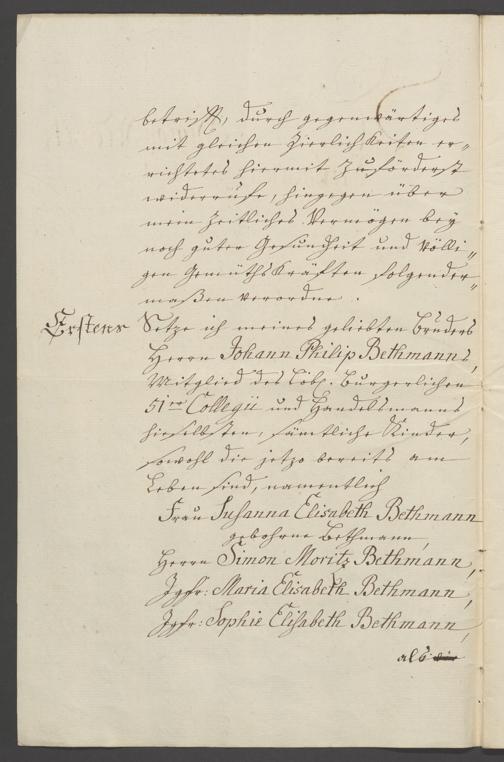 betrifft, durch gegenwärtiges
mit gleichen Zierlichkeiten er„
richtetes hiermit zuförderst
widerrufe, hingegen über
mein zeitliches Vermögen bey
noch guter Gesundheit und völli„
gen Gemüthskräften folgender„
maßen verordne.
Erstens Setze ich meines geliebten Bruders
Herrn Johann Philip Bethmanns,
Mitglied des Löbl. Burgerlichen
51ger Collegii und Handelsmanns
hieselbsten, sämtliche Kinder,
sowohl die jetzo bereits am
Leben sind, namentlich
Frau Susanna Elisabeth Bethmann
gebohrne Bethmann,
Herrn Simon Moritz Bethmann,
Jgfr: Maria Elisabeth Bethmann,
Jgfr: Sophie Elisabeth Bethmann,
als